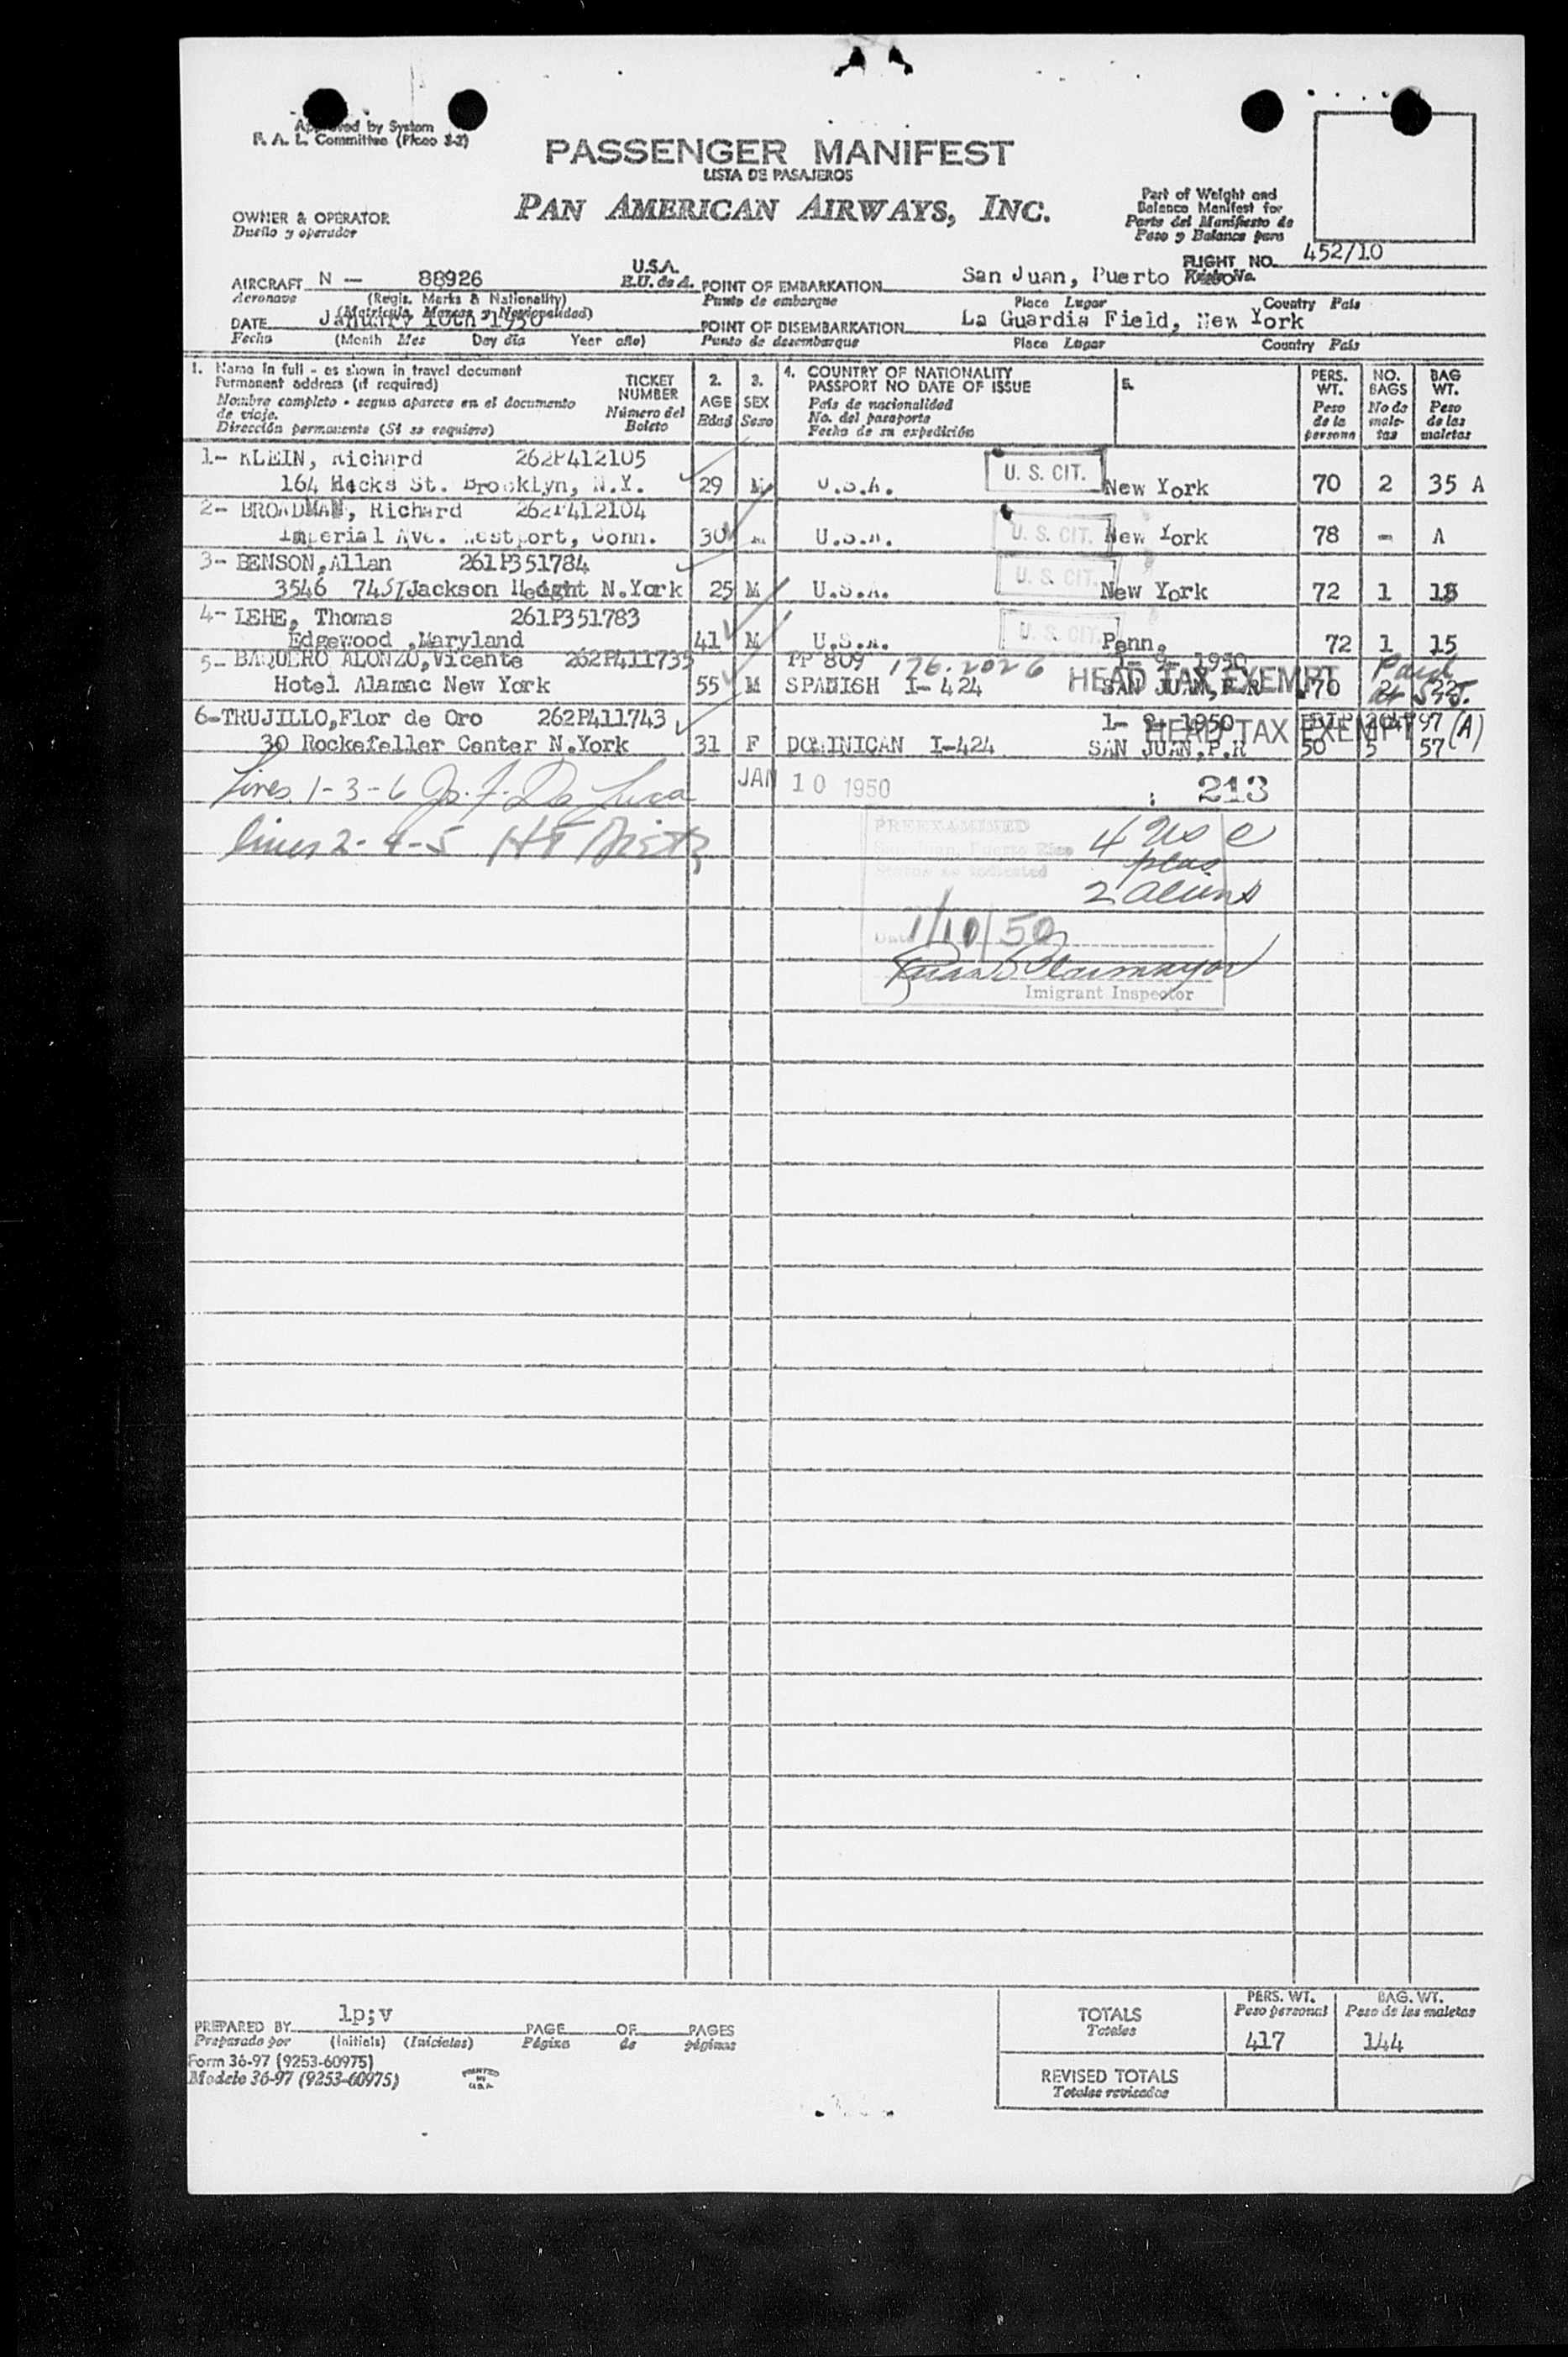 Approved by System
F. A. L. Committee (Picao 3-3)
PASSENGER MANIFEST
LISTA DE PASAJEROS
PAN AMERICAN AIRWAYS, INC.
OWNER & OPERATOR
Dueño y operador
Part of Weight and
Balance Manifest for
Parte del Manifiesto de
Peso y Balance para
FLIGHT NO. 452/10
AIRCRAFT N — 88926 U.S.A.
Aeronave (Regis. Marks & Nationality) E.U. de A.
(Matricula, Marcas y Nacionalidad)
POINT OF EMBARKATION San Juan, Puerto
Punto de embarque Place Lugar Country País
DATE January 10th 1950
Fecha (Month Mes Day día Year año)
POINT OF DISEMBARKATION La Guardia Field, New York
Punto de desembarque Place Lugar Country País
1. Name in full - as shown in travel document
Permanent address (if required)
Nombre completo - segun aparece en el documento
de viaje.
Dirección permanente (Si se requiere)
TICKET
NUMBER
Número del
Boleto
2.
AGE
Edad
3.
SEX
Sexo
4. COUNTRY OF NATIONALITY
PASSPORT NO DATE OF ISSUE
País de nacionalidad
No. del pasaporte
Fecha de su expedición
5.
PERS.
WT.
Peso
de la
persona
NO.
BAGS
No de
male-
tas
BAG
WT.
Peso
de las
maletas
1- KLEIN, Richard 262P412105
164 Hicks St. Brooklyn, N.Y. 29 M U.S.A. U. S. CIT. New York 70 2 35 A
2- BROADMAN, Richard 262P412104
Imperial Ave. Westport, Conn. 30 M U.S.A. U. S. CIT. New York 78 - A
3- BENSON,Allan 261P351784
3546 74ST Jackson Heaght N.York 25 M U.S.A. U. S. CIT. New York 72 1 15
4- LEHE, Thomas 261P351783
Edgewood ,Maryland 41 M U.S.A. U. S. CIT. Penn. 72 1 15
5- BAQUERO ALONZO,Vicente 262P411735 PP 809 176.2026 1- 9- 1950 Paid
Hotel Alamac New York 55 M SPANISH I- 424 HEAD TAX EXEMPT SAN JUAN,P.R 70 2 22
6-TRUJILLO,Flor de Oro 262P411743 1- 9- 1950 97 (A)
30 Rockefeller Center N.York 31 F DOMINICAN I-424 HEAD TAX EXEMPT SAN JUAN,P.R 50 5 57
Lines 1-3-6
JAN 10 1950
213
lines 2-4-5
PREEXAMINED
San Juan, Puerto Rico
Status as indicated
4 US C
plus
2 aliens
Date 1/10/50
Imigrant Inspector
PREPARED BY lp;v
Preparado por (Initials) (Iniciales)
PAGE OF PAGES
Página de páginas
Form 36-97 (9253-60975)
Modelo 36-97 (9253-60975)
PRINTED
IN
U.S.A.
TOTALS
Totales
PERS. WT.
Peso personal
417
BAG. WT.
Peso de las maletas
144
REVISED TOTALS
Totales revisados